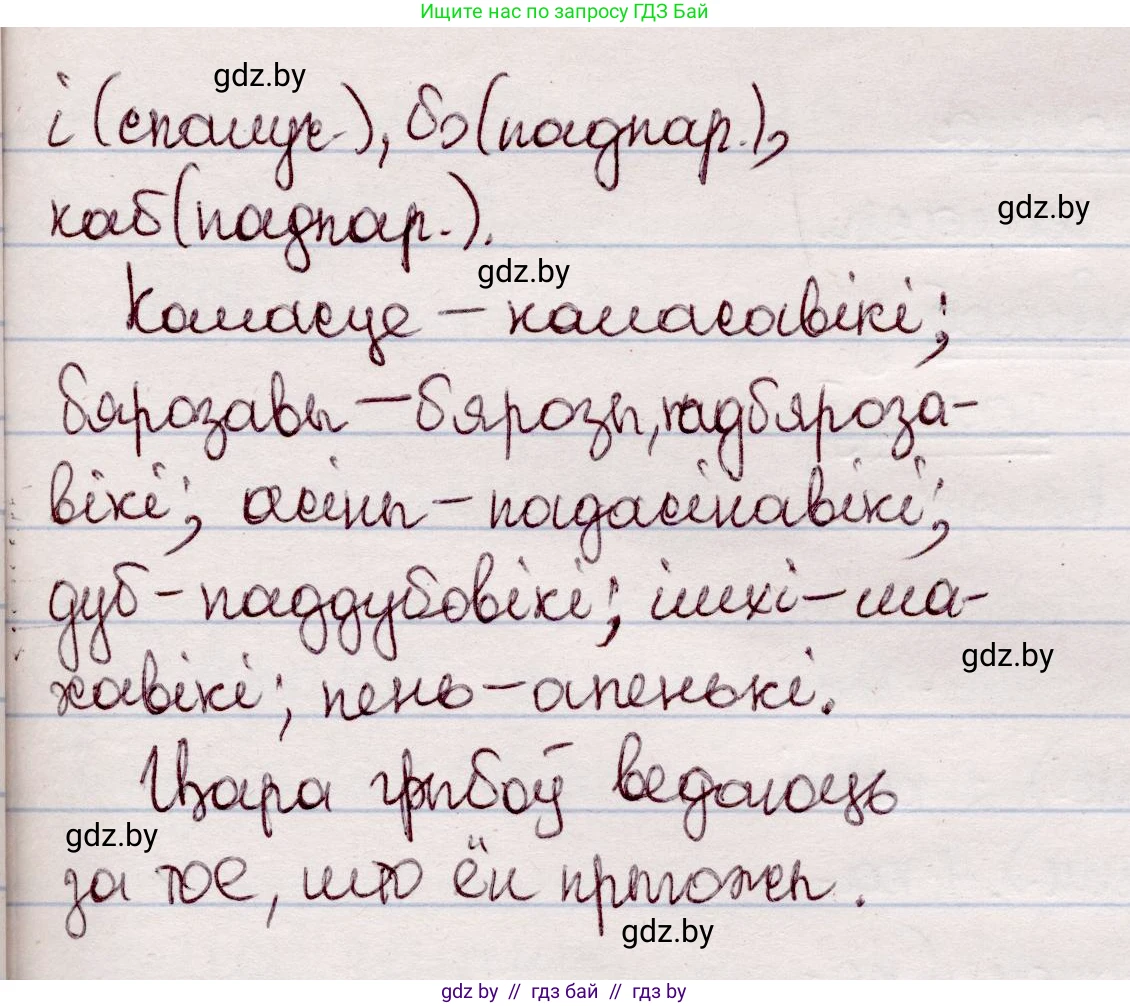 Ищите нас по запросу ГДЗ Бай
gdz.by
і (спалуч.), бо (падпар.),
каб (падпар.).
gdz.by
gdz.by
Коласце – коласавікі;
бярозавы – бярозы, падбяроза-
вікі; асіны – падасінавікі;
дуб – паддубовікі; імхі – ма-
gdz.by
хавікі; пень – апенькі.
Цара грыбоў ведаюць
gdz.by
за тое, што ён прыгожы.
gdz.by
gdz by // гдз бай // гдз by